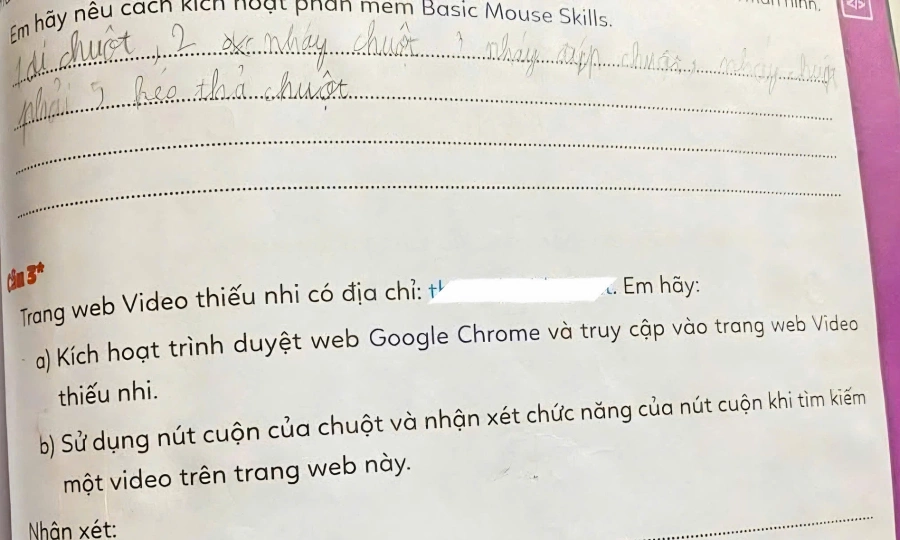 Em hãy nêu cách kích hoạt phần mềm Basic Mouse Skills.
chuột, 2 nháy chuột, nháy chuột, nháy chuột
phải, kéo thả chuột
Câu 3*
Trang web Video thiếu nhi có địa chỉ: . Em hãy:
a) Kích hoạt trình duyệt web Google Chrome và truy cập vào trang web Video
thiếu nhi.
b) Sử dụng nút cuộn của chuột và nhận xét chức năng của nút cuộn khi tìm kiếm
một video trên trang web này.
Nhận xét: